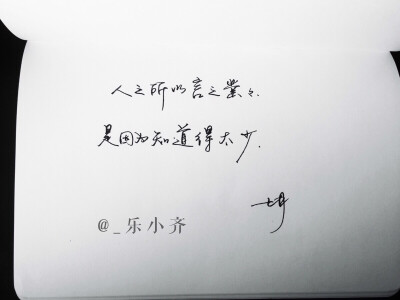 人之所以言之凿凿.
是因为知道得太少.
@_乐小齐